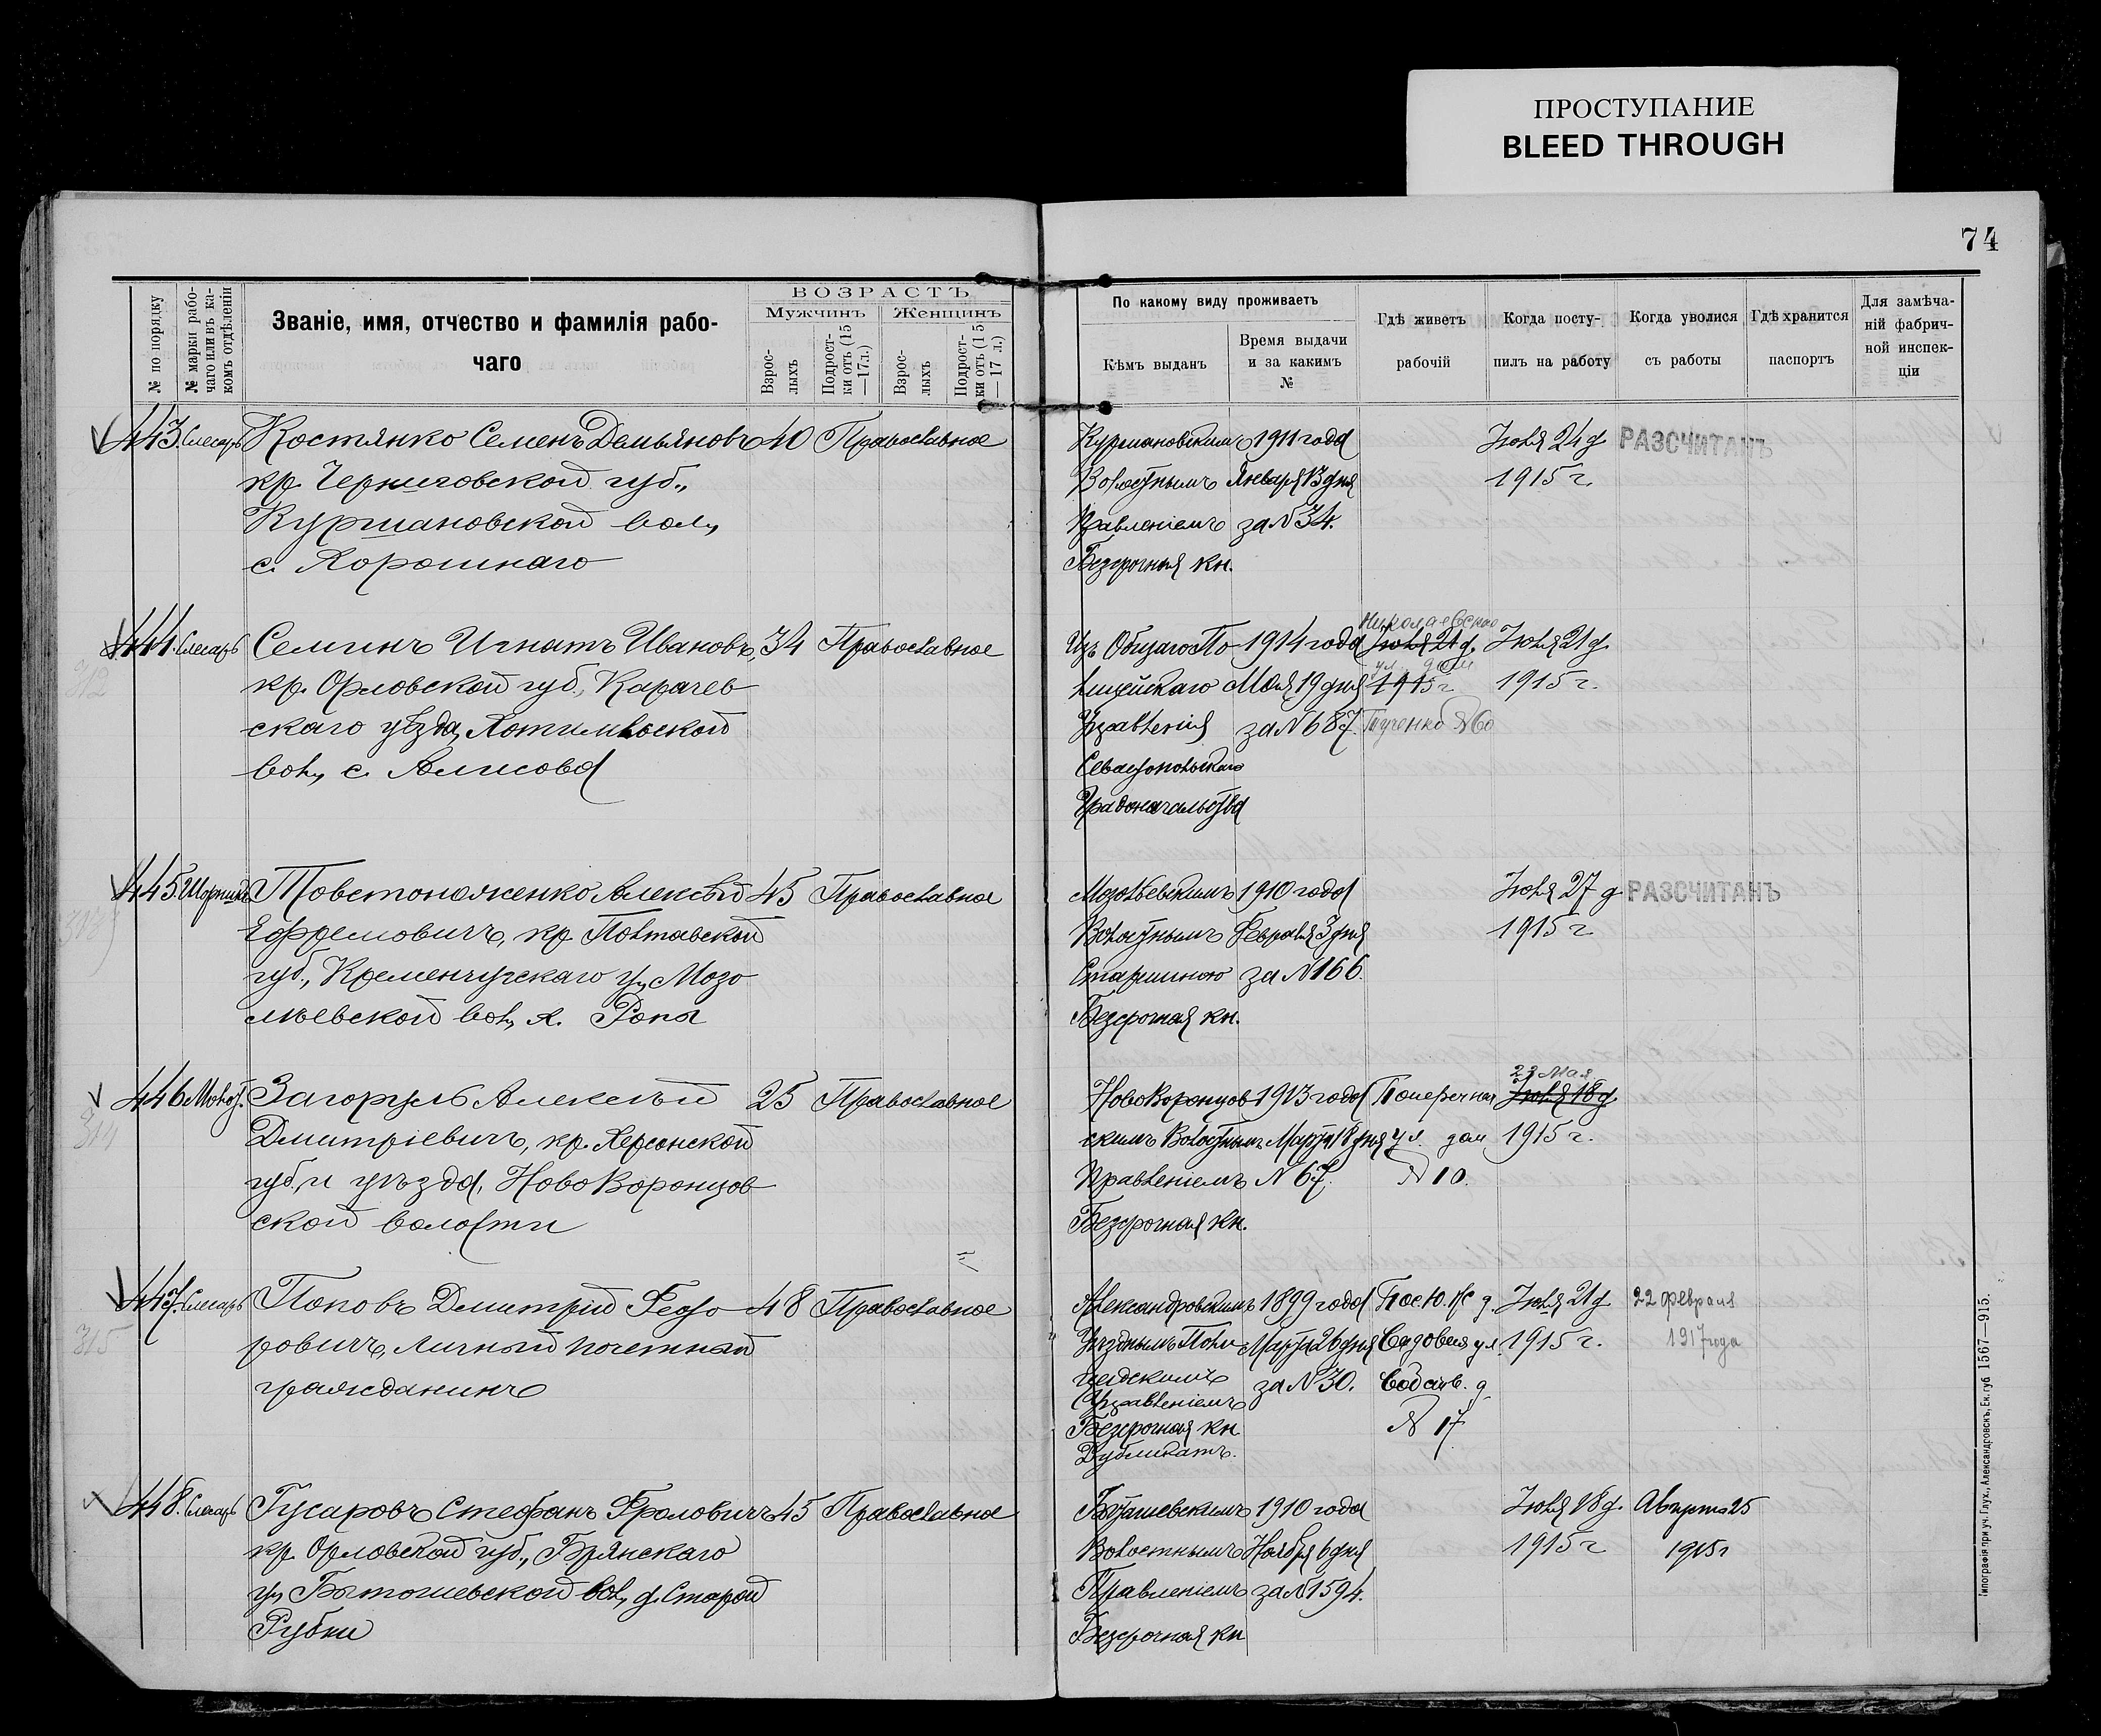 ПРОСТУПАНИЕ
BLEED THROUGH
74
№ по порядку
№ марки рабо-
чаго или въ ка-
комъ отдѣленіи
Званіе, имя, отчество и фамилія рабо-
чаго
ВОЗРАСТЪ
Мужчинъ
Женщинъ
Взрос-
лыхъ
Подрост-
ки отъ (15
—17л.)
Взрос-
лыхъ
Подрост-
ки отъ (15
—17 л.)
По какому виду проживаетъ
Кѣмъ выданъ
Время выдачи
и за какимъ
№
Гдѣ живетъ
рабочій
Когда посту-
пилъ на работу
Когда уволися
съ работы
Гдѣ хранится
паспортъ
Для замѣча-
ній фабрич-
ной инспек-
ціи
443. Слесарь Костянко Семенъ Демьяновъ 40 Православное
кр. Черниговской губ.,
Курмановской вол.,
с. Хорошнаго
Курмановскимъ 1911 года Іюля 24 д. РАЗСЧИТАНЪ
Волостнымъ Января 13 дня 1915 г.
Правленіемъ за № 34.
Безсрочная кн.
444. Слесарь Семинъ Игнатъ Ивановъ, 34 Православное
312
кр. Орловской губ., Карачев
скаго уѣзда, Хотимльской
вол., с. Алисова
Николаевская
Изъ Общаго По- 1914 года Іюля 21 д. Іюля 21 д.
ул. дом
лицейскаго Мая 19 дня 1915 г. 1915 г.
Управленія за № 687. №60
Севастопольскаго
Градоначальства
445. Шорникъ Товстоноженко Алексѣй 45 Православное
Ефремовичъ, кр. Полтавской
губ., Кременчугскаго у., Мозо
лѣевской вол., х. Ропа
Мозолѣевскимъ 1910 года Іюля 27 д РАЗСЧИТАНЪ
Волостнымъ Февраля 3 дня 1915 г
Старшиною за № 166.
Безсрочная кн.
446 Молот. Загоруль Алексѣй 25 Православное
314
Дмитріевичъ, кр. Херсонской
губ. и уѣзда, НовоВоронцов
ской волости
23 Мая
НовоВоронцов- 1913 года Поперечная Іюля 18 д.
скимъ Волостнымъ Марта 18 дня ул. дом 1915 г.
Правленіемъ № 67. № 10.
Безсрочная кн.
447. Слесарь Поповъ Дмитрій Федо- 48 Православное
315
ровичъ, личный почетный
гражданинъ
Александровскимъ 1899 года Пос. Ю. ж д. Іюля 21 д. 22 февраля
Уѣзднымъ Поли- Марта 26 дня Садовая ул. 1915 г. 1917 года
цейскимъ за № 30. Собств. д
Управленіемъ № 17
Безсрочная кн
Дубликатъ.
448. Слесарь Гусаровъ Стефанъ Фроловичъ 45 Православное
кр. Орловской губ., Брянскаго
у., Бытошевской вол., д. Старой
Рубки
Бытошевскимъ 1910 года Іюля 18 д. Августа 25
Волостнымъ Ноября 6 дня 1915 г 1915 г
Правленіемъ за № 1594.
Безсрочная кн
Типографія при уч. Глух., Александровскъ, Ек. губ. 1567—915.